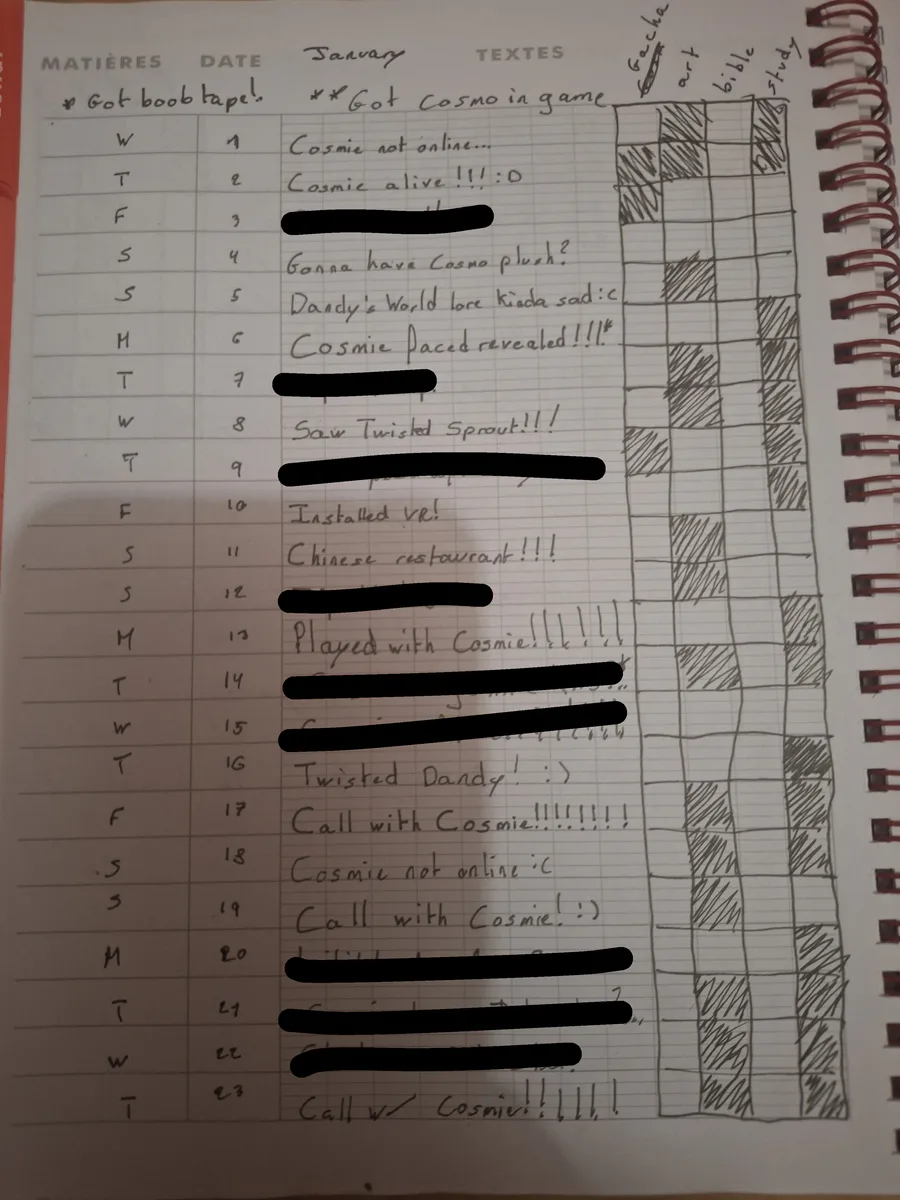 MATIÈRES DATE January TEXTES Gacha art bible study
* Got boob tape! **Got Cosmo in game
W 1 Cosmie not online...
T 2 Cosmie alive !!! :D
F 3
S 4 Gonna have Cosmo plush?
S 5 Dandy's World lore kinda sad :c
M 6 Cosmie faced revealed!!!*
T 7
W 8 Saw Twisted Sprout!!!
T 9
F 10 Installed VR!
S 11 Chinese restaurant!!!
S 12
M 13 Played with Cosmie!!!!!!!
T 14
W 15
T 16 Twisted Dandy! :)
F 17 Call with Cosmie!!!!!!!!!
S 18 Cosmie not online :c
S 19 Call with Cosmie! :)
M 20
T 21
W 22
T 23 Call w/ Cosmie!!!!!!